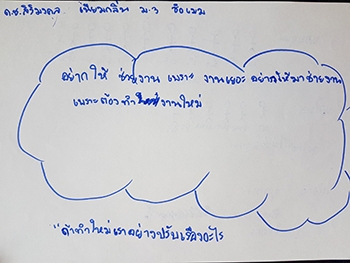 ด.ช.สิริมงคล เทียมกลิ่น ม.3 ชื่อเมม
อยากให้ ช่วยงาน เพราะ งานเยอะ อยากให้มาช่วยงาน
เพราะต้องทำ งานใหม่
"ถ้าทำใหม่เราอย่างปรับเรื่องอะไร